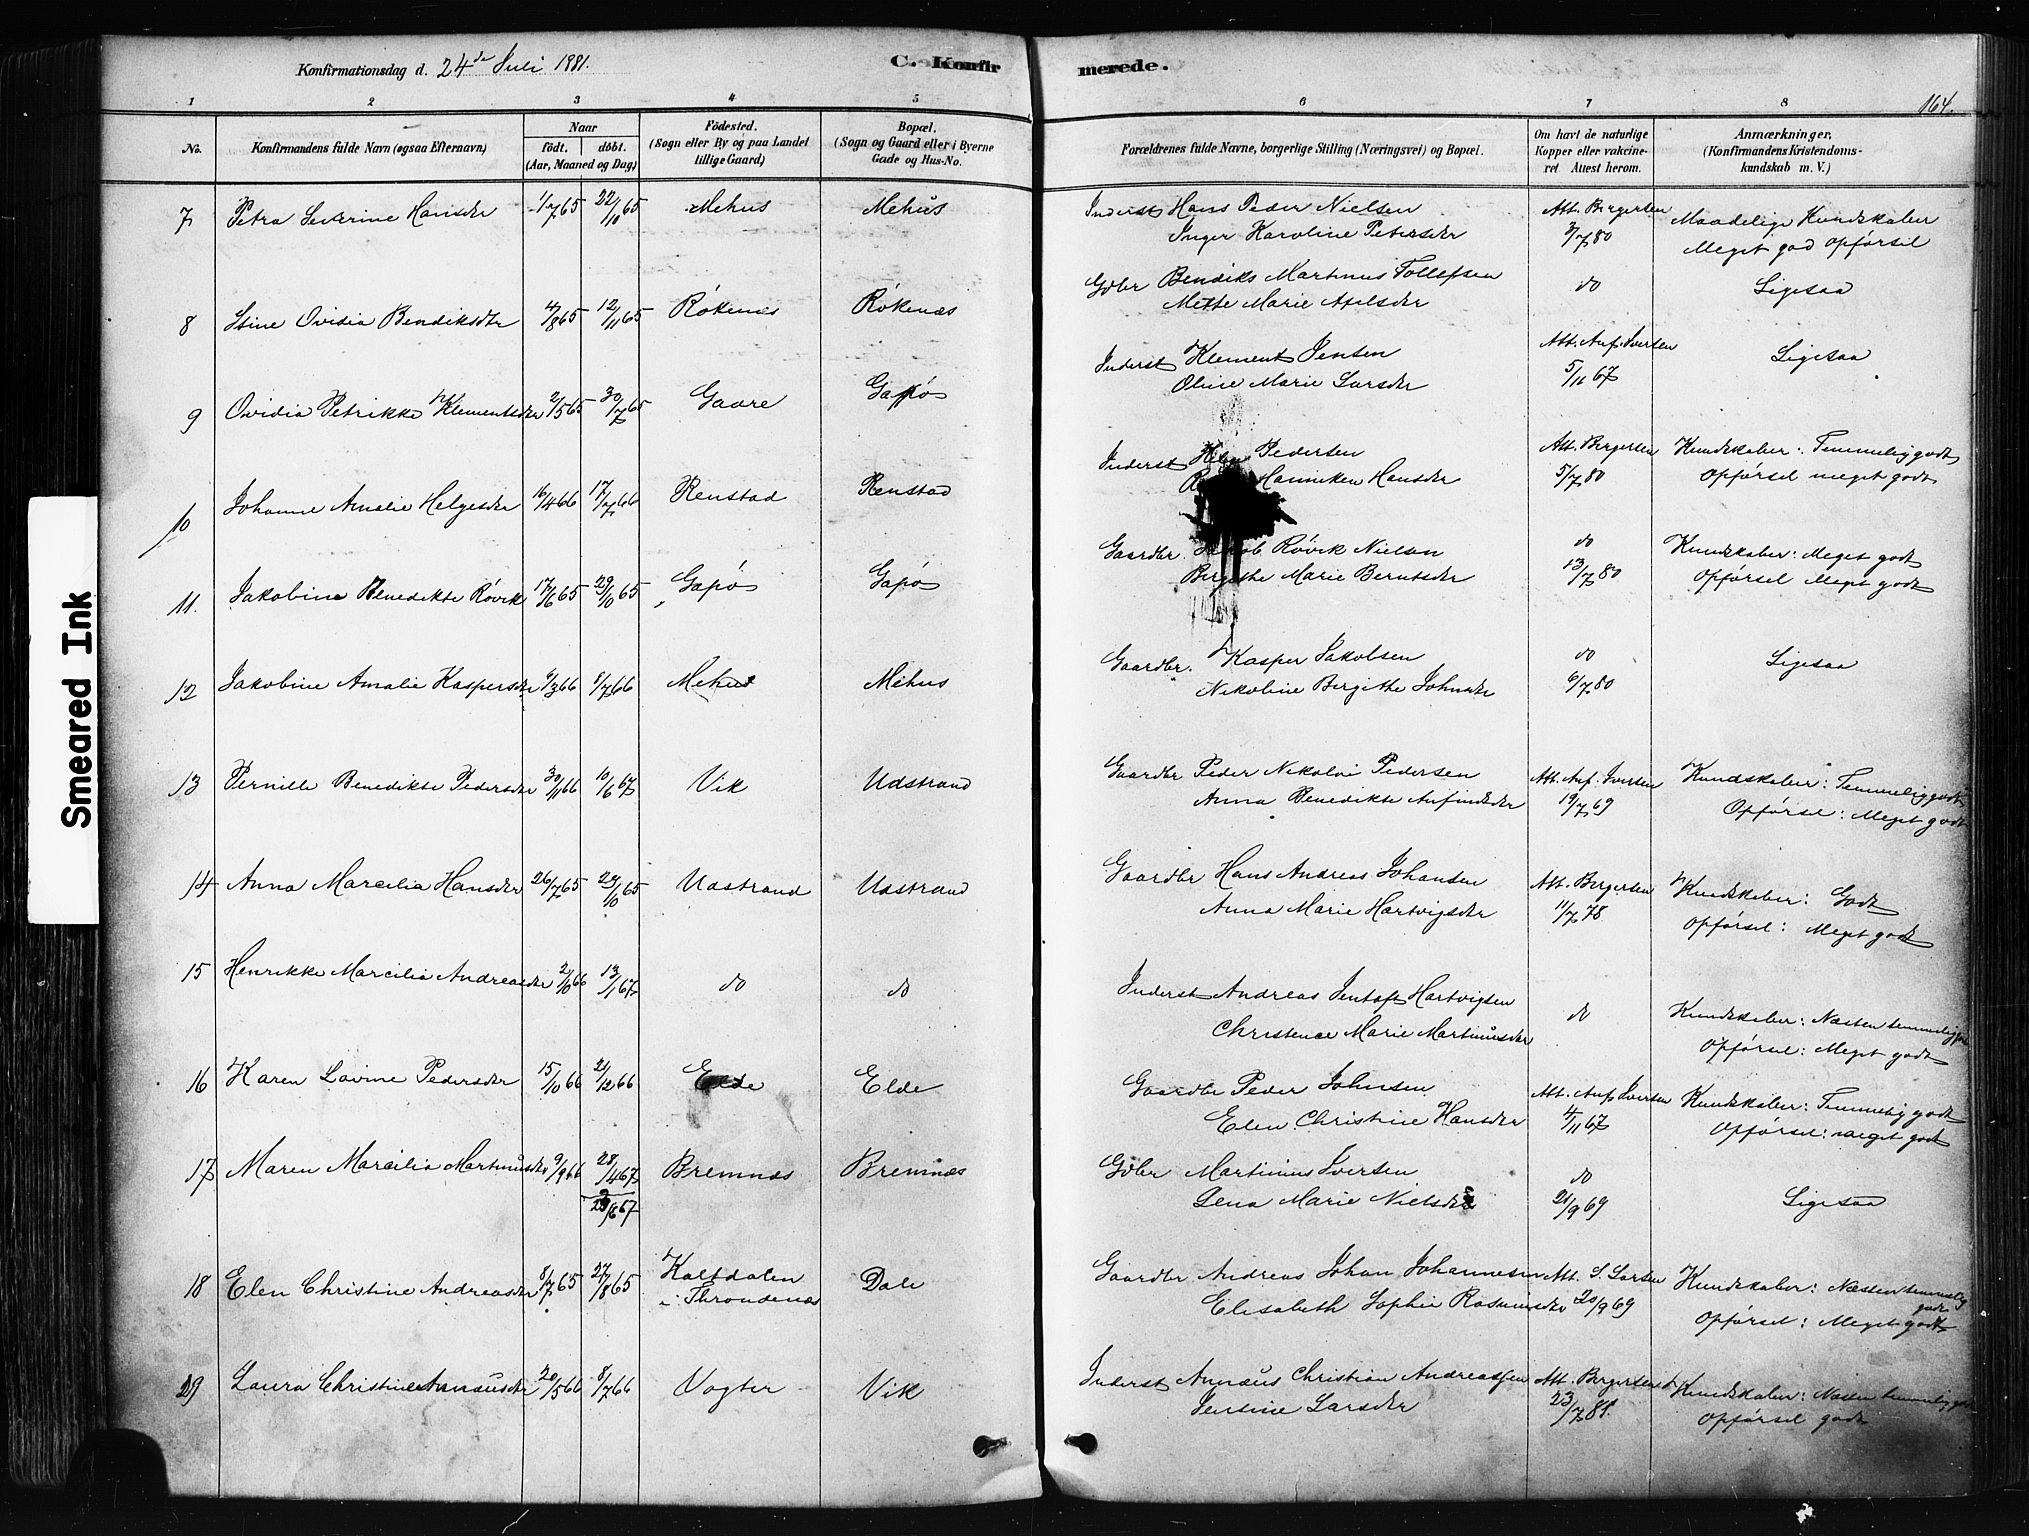 Konfirmationsdag d. 24de Juli 1881.
C. Konfirmerede.
164.
1 2 3 4 5 6 7 8
No.
Konfirmandens fulde Navn (ogsaa Efternavn)
Naar
født. døbt.
(Aar, Maaned og Dag)
Födested.
(Sogn eller By og paa Landet
tillige Gaard)
Bopæl.
(Sogn og Gaard eller i Byerne
Gade og Hus-No.
Forældrenes fulde Navne, borgerlige Stilling (Næringsvei) og Bopæl.
Om havt de naturlige
Kopper eller vakcine-
ret Attest herom.
Anmærkninger,
(Konfirmandens Kristendoms-
kundskab m. V.)
7 Petra Severine Hansdtr 1/7 65 22/10 65 Mehus Mehus Inderst Hans Peder Nielsen Att. Bergersen Maadelige Kundskaber
Inger Karoline Petersdtr 3/7 80 Meget god opførsel
8 Stine Ovidia Bendiksdtr 4/8 65 12/11 65 Røkenes Røkenæs Gdbr Bendiks Martinus Tollefsen do Ligesaa
Mette Marie Axelsdtr
9 Ovidia Petrikke Klementsdtr 2/5 65 30/7 65 Gaare Gapø Inderst Klement Jensen Att. Anf. Iversen Ligesaa
Oline Marie Larsdtr 5/11 67
10 Johanne Amalie Helgesdtr 16/4 66 17/7 66 Renstad Renstad Inderst Pedersen Att. Bergersen Kundskaber: Temmelig godt
Hanniken Hansdtr 5/7 80 Opførsel meget godt
11. Jakobine Benedikte Røvik 17/6 65 29/10 65 Gapø Gapø Gaardbr. Jakob Røvik Nielsen do Kundskaber: Meget godt
Bergithe Marie Berntsdtr 13/7 80 Opførsel Meget godt
12 Jakobine Amalie Kaspersdtr 9/3 66 8/7 66 Mehus Mehus Gaardbr. Kasper Jakobsen do Ligesaa
Nikoline Bergithe Johnsdtr 6/7 80
13 Pernille Benedikte Pedersdtr 30/11 66 10/6 67 Vik Udstrand Gaardbr Peder Nikolai Pedersen Att. Anf. Iversen Kundskaber: Temmelig godt
Anna Benedikte Anfindsdtr 19/7 69 Opførsel: Meget godt
14 Anna Marcilia Hansdtr 26/7 65 22/10 65 Udstrand Udstrand Gaardbr Hans Andreas Johansen Att. Bergersen Kundskaber: Godt
Anna Marie Hartvigsdtr 11/7 78 Opførsel: Meget godt
15 Henrikke Marcilia Andreasdtr 2/10 66 13/1 67 do do Inderst Andreas Jentoft Hartvigsen do Kundskaber: Næsten temmelig godt
Christence Marie Martinusdtr Opførsel: Meget godt
16 Karen Lovine Pedersdtr 15/10 66 21/12 66 Elde Elde Gaardbr Peder Johnsen Att. Anf Iversen Kundskaber: Temmelig godt
Elen Christine Hansdtr 4/11 67 Opførsel: meget godt
17 Maren Marcilia Martinusdtr 9/9 66 28/4 67 Bremnæs Bremnæs Gdbr Martinus Iversen do Ligesaa
/6 67 Lena Marie Nielsdtr 21/9 69
18 Elen Christine Andreasdtr 8/7 65 27/8 65 Kaltdalen Dale Gaardbr Andreas Johan Johannesen Att. S. Larsen Kundskaber: Næsten temmelig
i Throndenæs Elisabeth Sophie Rasmusdtr 20/9 69 godt
Opførsel: Meget godt
19 Laura Christine Annæusdtr 20/5 66 8/7 66 Vogter Vik Inderst Annæus Christian Andreassen Att. Bergersen Kundskaber: Næsten temmelig godt
Jensine Larsdtr 23/7 81. Opførsel godt
Smeared Ink